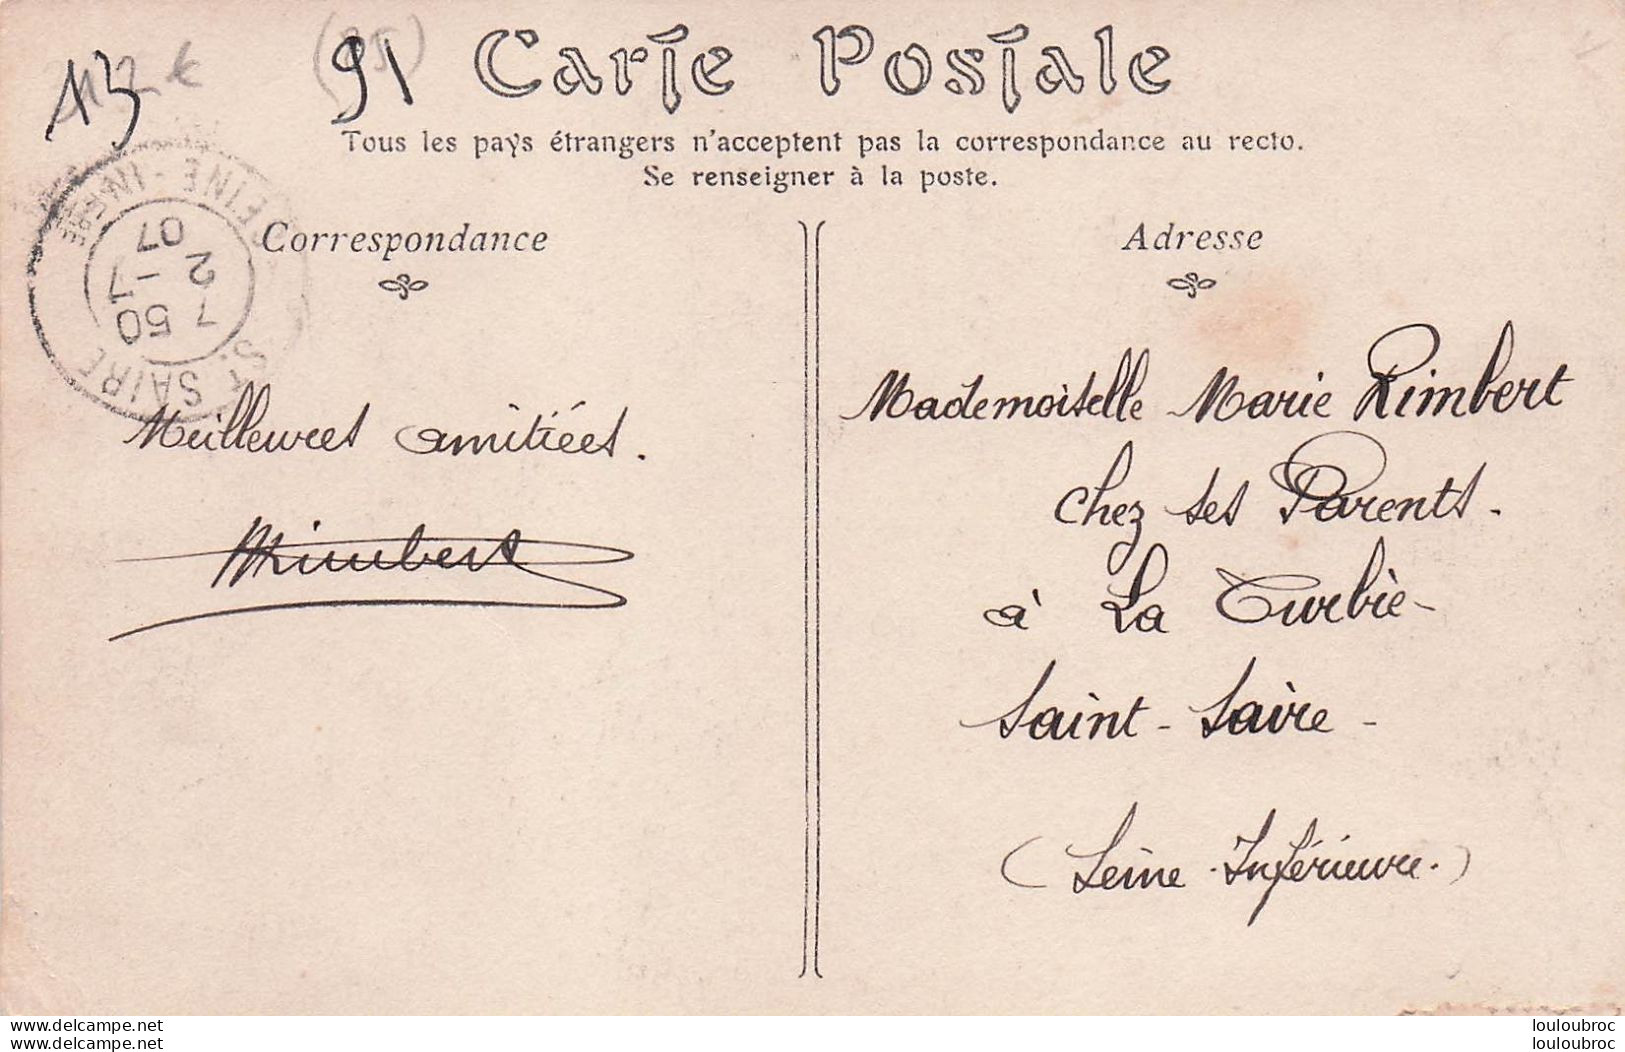 113
2 €
(95)
91
Carte Postale
Tous les pays étrangers n'acceptent pas la correspondance au recto.
Se renseigner à la poste.
Correspondance
Adresse
ST SAIRE
SEINE-INFRE
7 50
2 -7
07
Meilleures amitiées.
Rimbert
Mademoiselle Marie Rimbert
chez ses Parents.
à La Turbie-
Saint-Saire-
(Seine-Inférieure.)
www.delcampe.net
www.delcampe.net
louloubroc
louloubroc